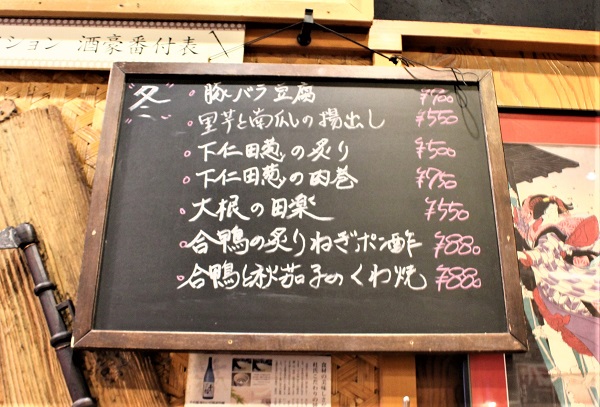 ション 酒豪番付表
"冬"
・豚バラ豆腐 ¥700
・里芋と南瓜の揚出し ¥550
・下仁田葱の炙り ¥500
・下仁田葱の肉巻 ¥750
・大根の田楽 ¥550
・合鴨の炙りねぎポン酢 ¥880
・合鴨と秋茄子のくわ焼 ¥880